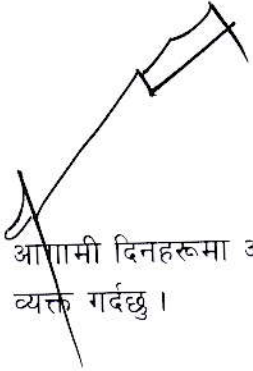 आगामी दिनहरूमा
व्यक्त गर्दछु ।